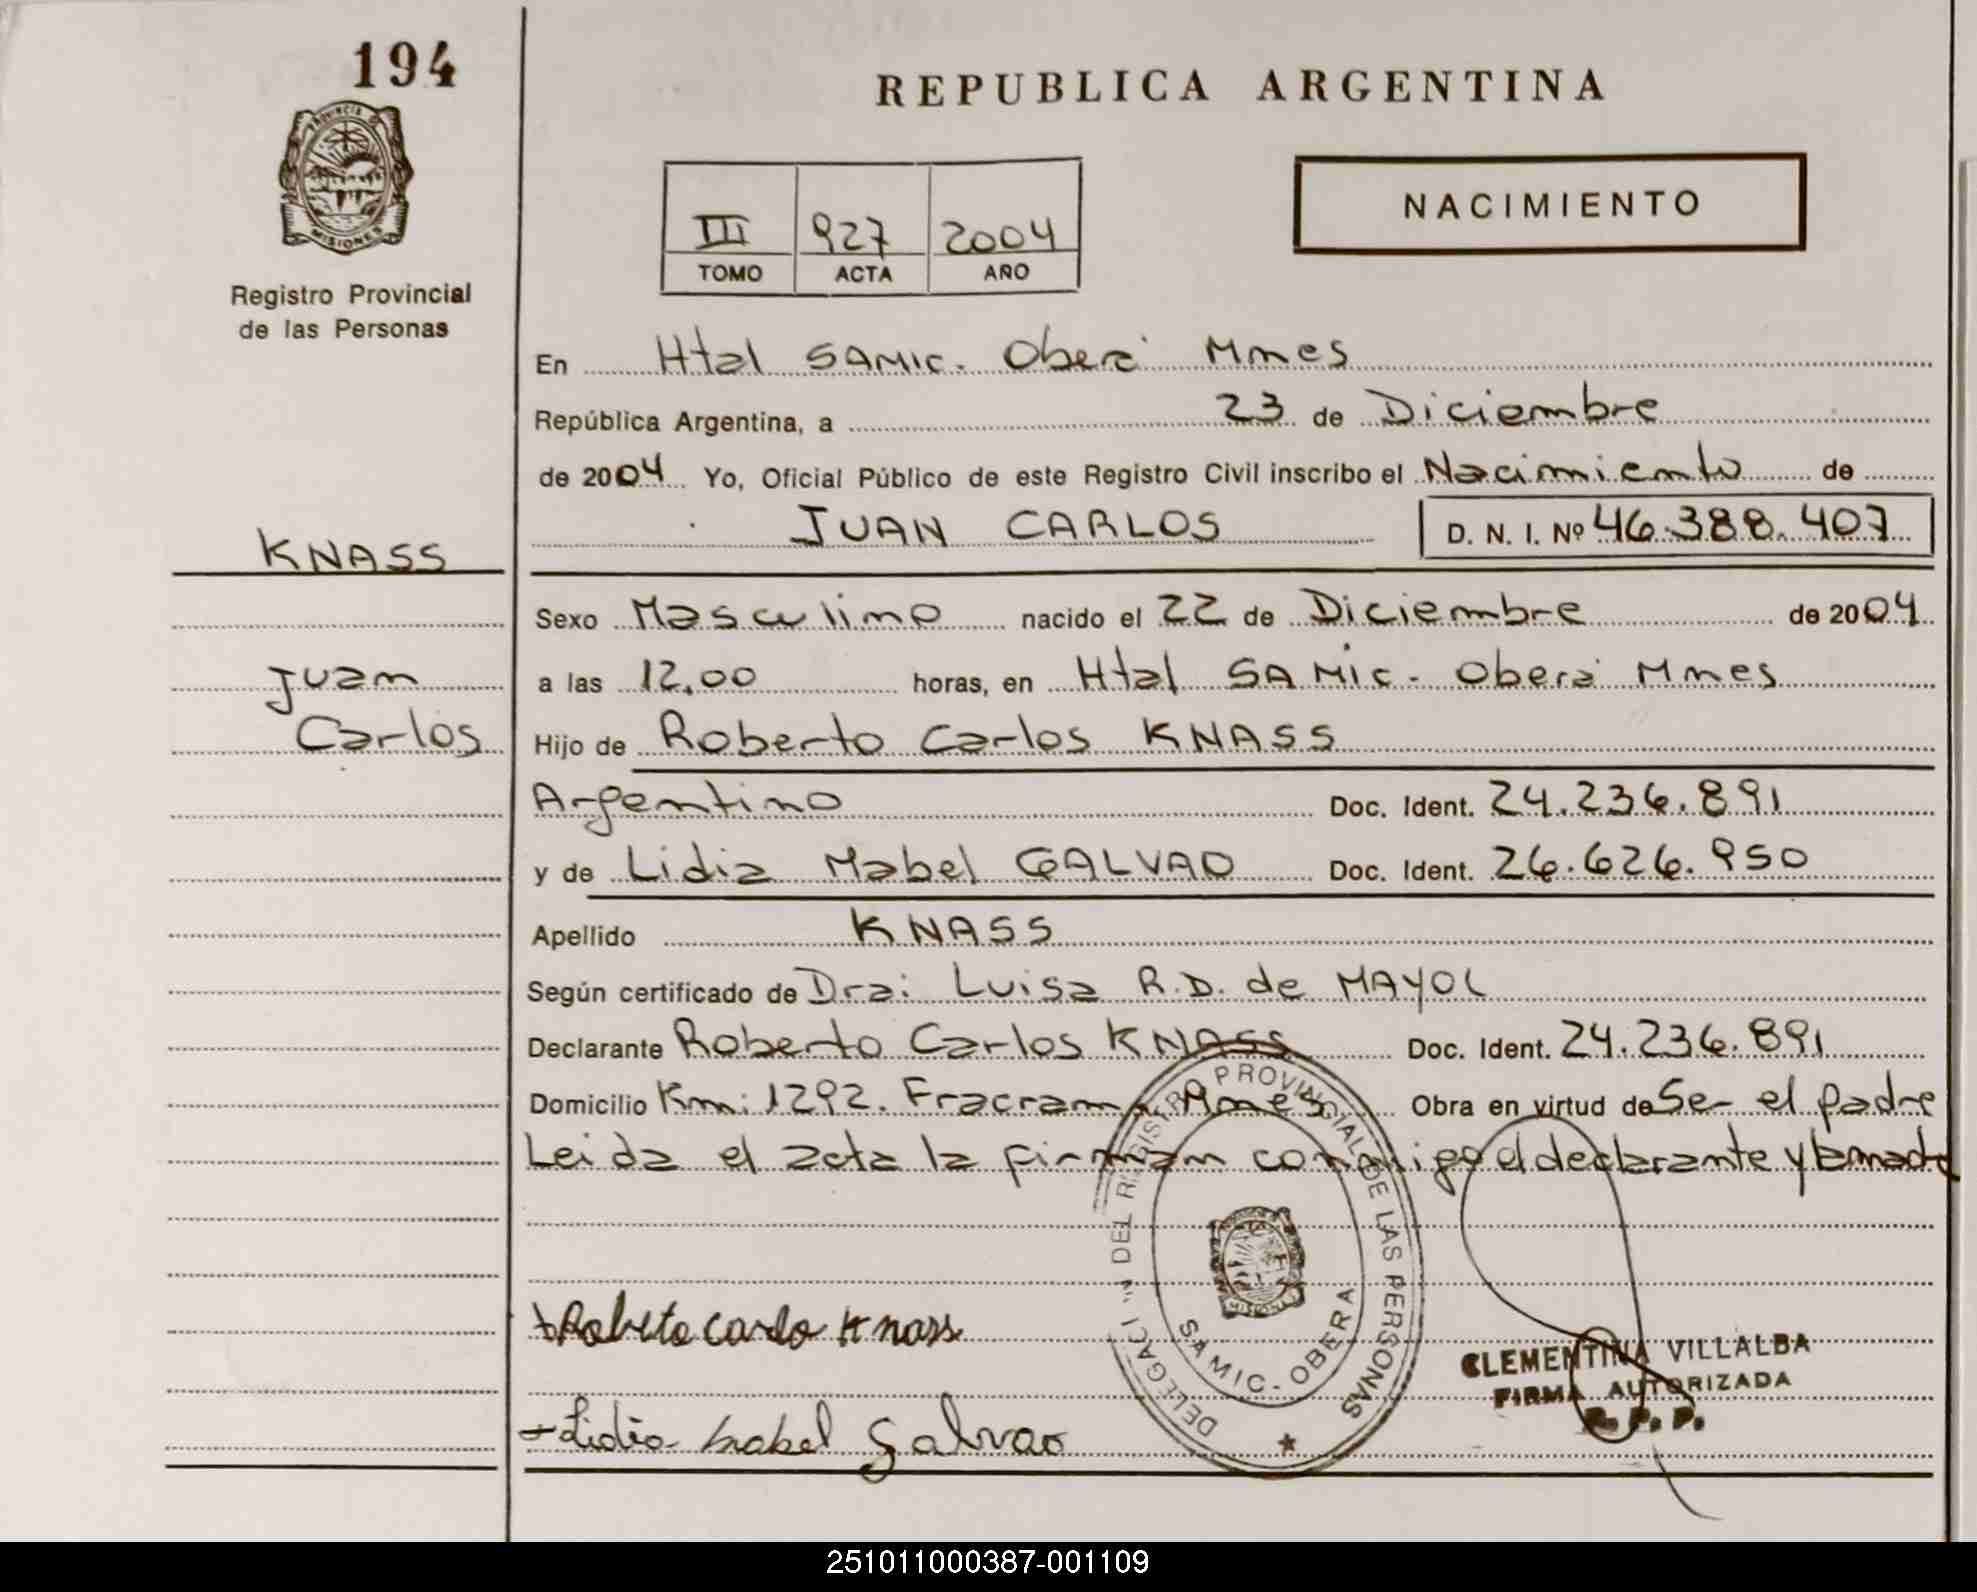 194
PROVINCIA D
MISIONES
Registro Provincial
de las Personas
REPUBLICA ARGENTINA
III 927 2004
TOMO ACTA AÑO
NACIMIENTO
En Htal SAMIC. Oberá Mnes
República Argentina, a 23 de Diciembre
de 2004 Yo, Oficial Público de este Registro Civil inscribo el Nacimiento de
JUAN CARLOS D. N. I. Nº 46.388.407
KNASS
Juan
Carlos
Sexo Masculino nacido el 22 de Diciembre de 2004
a las 12,00 horas, en Htal SAMIC. Oberá Mnes
Hijo de Roberto Carlos KNASS
Argentino Doc. Ident. 24.236.891
y de Lidia Mabel GALVAO Doc. Ident. 26.626.950
Apellido KNASS
Según certificado de Dra: Luisa R.D. de MAYOL
Declarante Roberto Carlos KNASS Doc. Ident. 24.236.891
Domicilio Km: 1292. Fracram Mnes Obra en virtud de Ser el padre
Leida el acta la firman conmigo el declarante y la madre
DEL REGISTR PROVINCIAL DE LAS PERSONAS
SAMIC - OBERA
MISIONES
Roberto Carlo Knass
CLEMENTINA VILLALBA
FIRMA AUTORIZADA
R. P. P.
Lidia Mabel Galvao
251011000387-001109